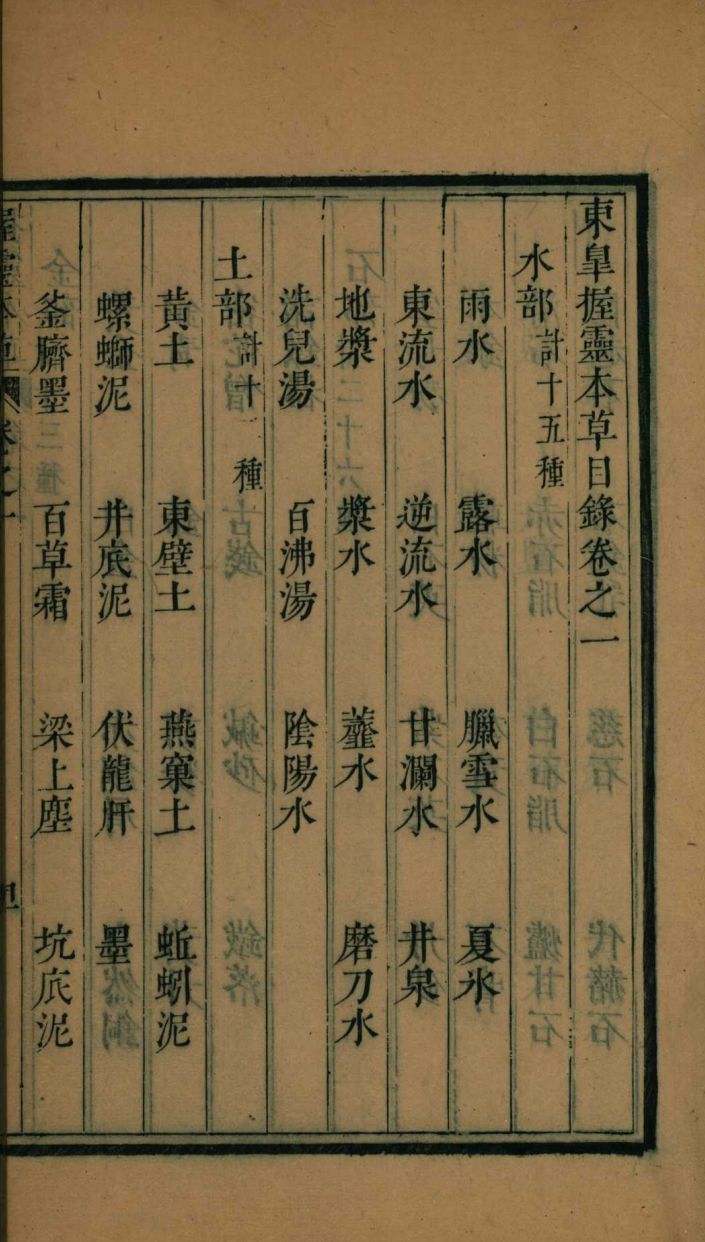 東皐握靈本草目錄卷之一
水部 計十五種
雨水 露水 臘雪水 夏氷
東流水 逆流水 甘瀾水 井泉
地漿 漿水 虀水 磨刀水
洗兒湯 百沸湯 陰陽水
土部 計十二種
黃土 東壁土 燕窠土 蚯蚓泥
螺螄泥 井底泥 伏龍肝 墨
釜臍墨 百草霜 梁上塵 坑底泥
握靈本草 卷之一